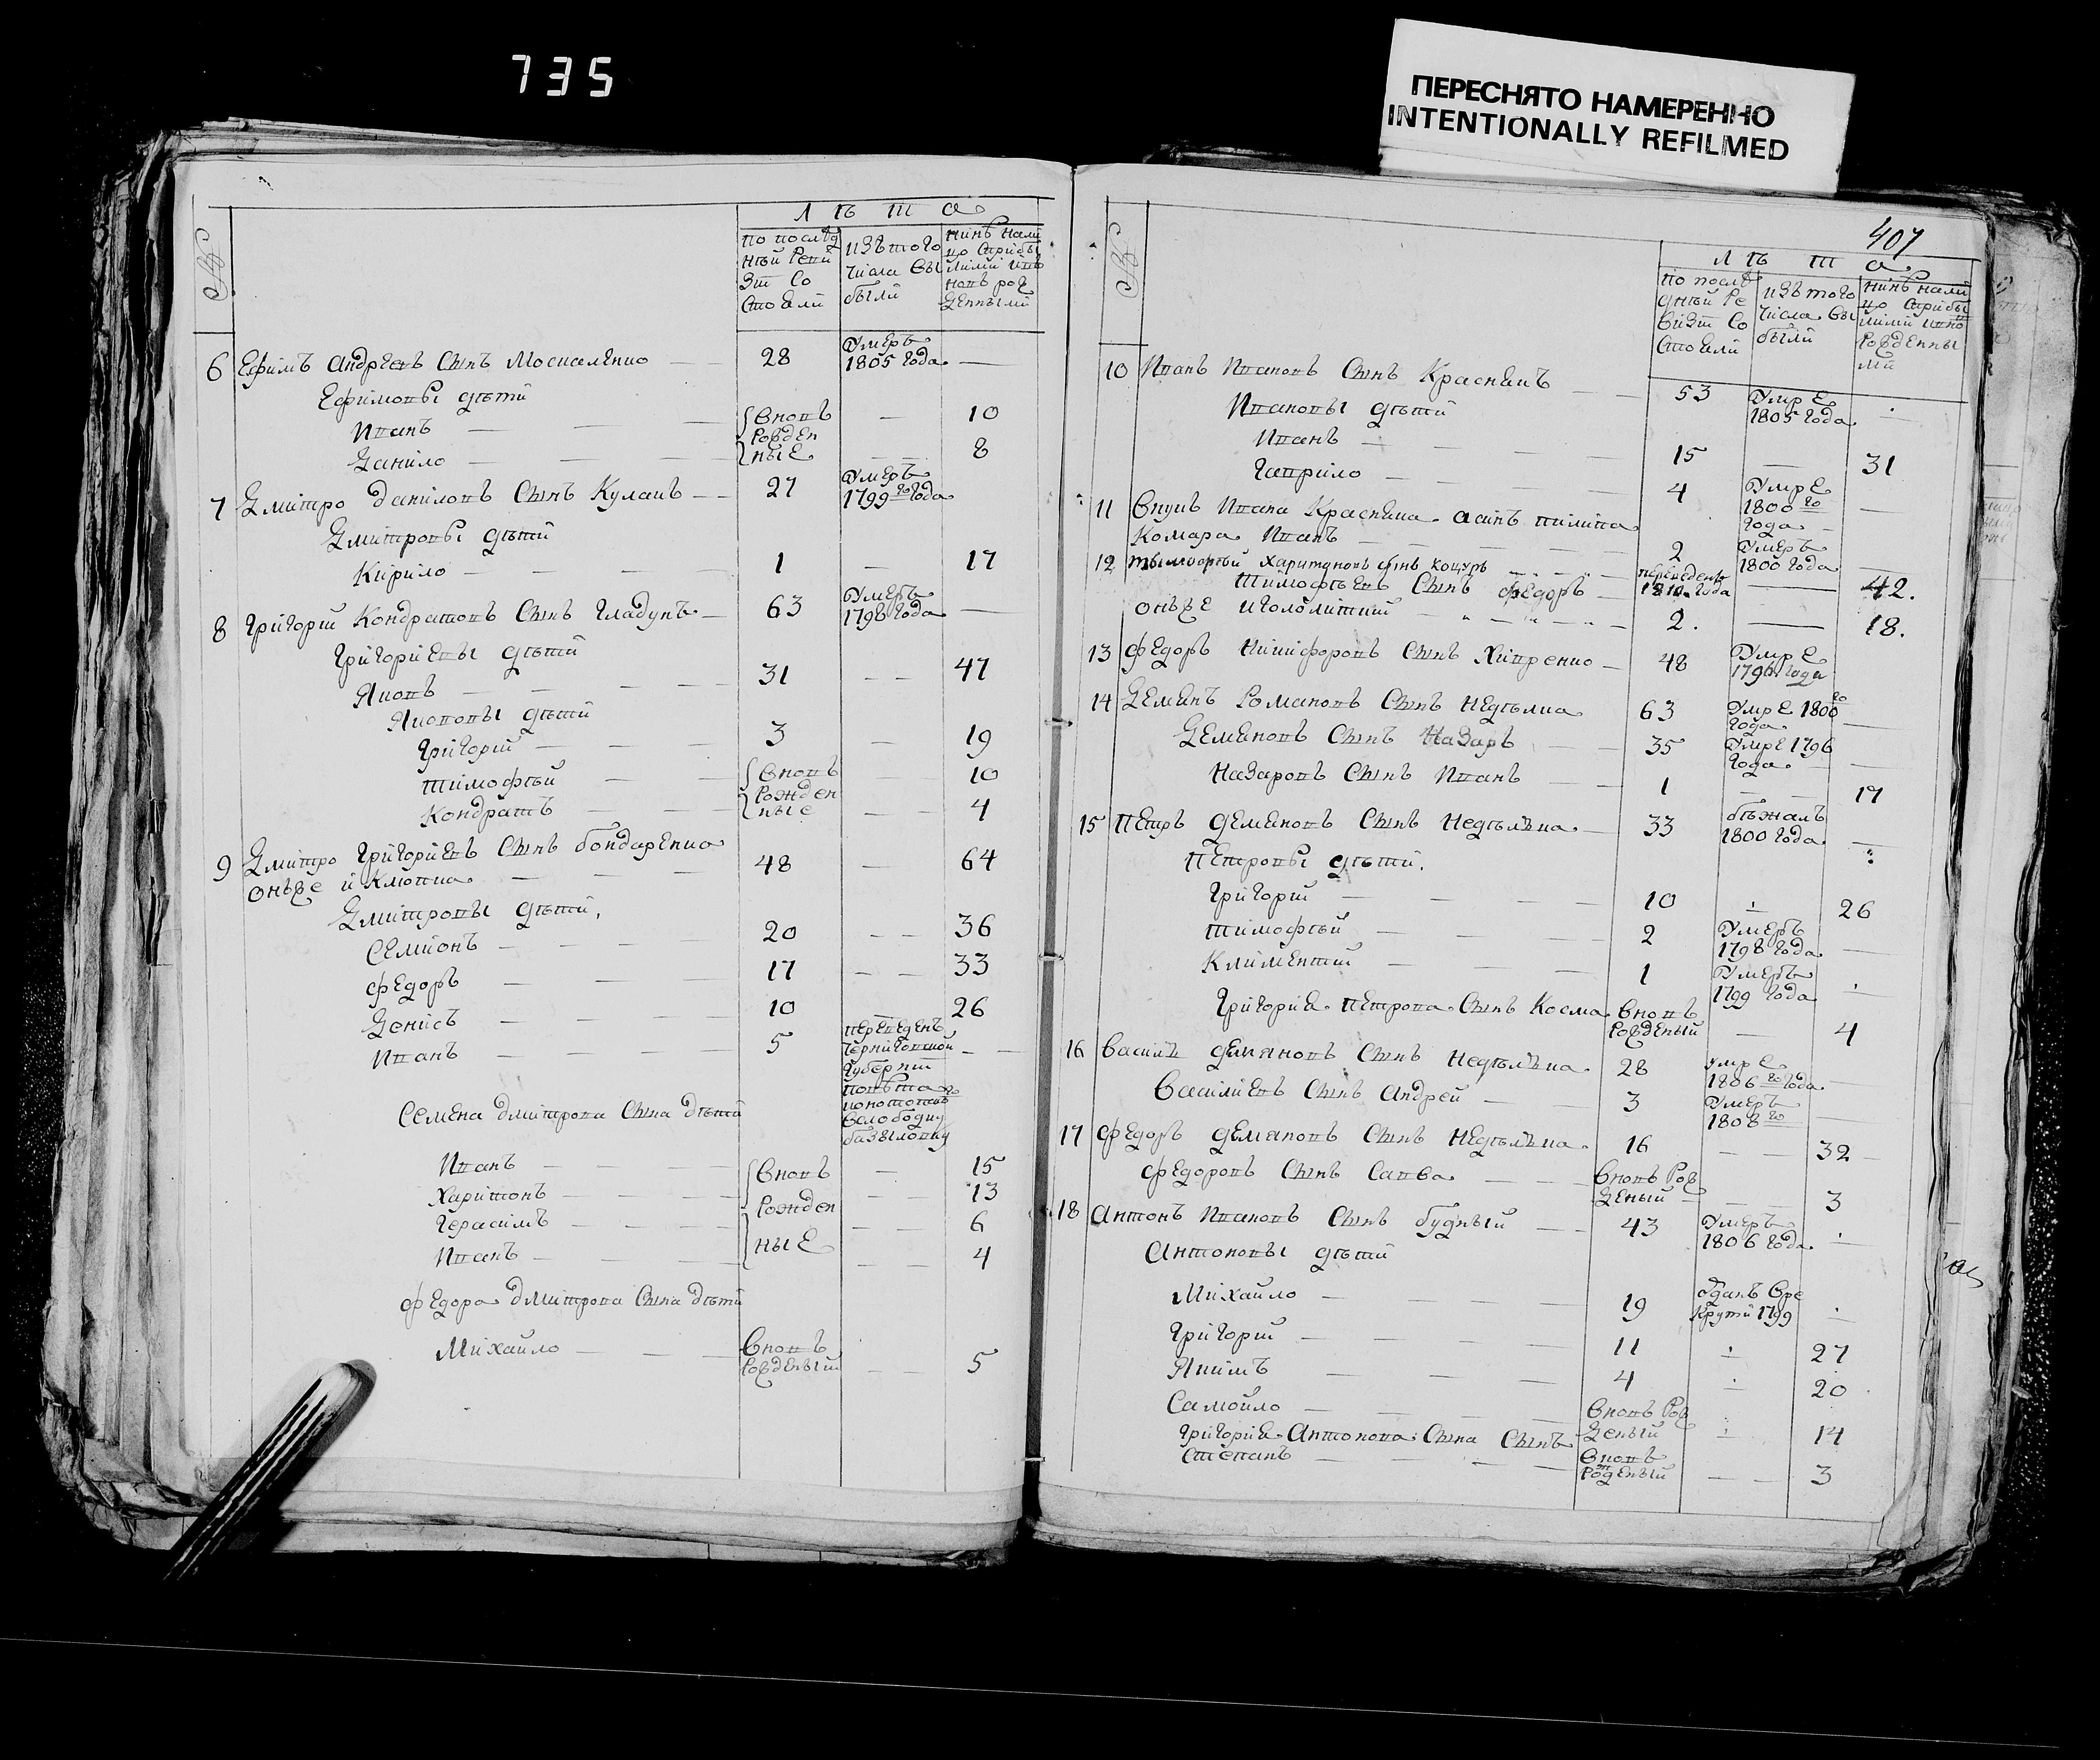 735
ПЕРЕСНЯТО НАМЕРЕННО
INTENTIONALLY REFILMED
Лѣта
по послѣд
ней Реви
зіи Со
стояли
изъ того
числа вы
были
нинѣ нали
цо
вновь рож
денными
6 Ефимъ Андреевъ Сынъ Москаленко 28 Умеръ
1805 года
Ефимовы дѣти
Иванъ Вновь 10
рожден
Данило ные 8
7 Дмитро Даниловъ Сынъ Кулакъ 27 Умеръ
1799го года
Дмитровы дѣти
Кирило 1 17
8 Григорий Кондратовъ Сынъ Гладунъ 63 Умеръ
1798 года
Григориевы дѣти
Яковъ 31 47
Яковowы дѣти
Григорий 3 19
Тимофѣй Вновь 10
рожден
Кондратъ ные 4
9 Дмитро Григориевъ Сынъ Бондаренко
онъже и Клюпка 48 64
Дмитровы дѣти.
Семионъ 20 36
Федоръ 17 33
Денисъ 10 26
Иванъ 5 переведенъ
Черниговской
Губернии
повѣта
Семена Дмитрова Сына дѣти
Иванъ Вновь 15
Харитонъ рожден 13
Герасимъ 6
Иванъ ные 4
Федора Дмитрова Сына дѣти
Михайло Вновь
рожденый 5
407
Лѣта
по послѣ
дней Ре
визіи Со
стояли
изъ того
числа вы
были
нинѣ нали
цо
рожденны
ми
10 Иванъ Ивановъ Сынъ Красникъ 53 Умре
1805 года
Ивановы дѣти
Иванъ 15 31
Гаврило 4 Умре
1800го
года
11 Внукъ Ивана Красника а синъ пилипа
Комара Иванъ 2 Умеръ
1800 года
12 Тимофѣй Харитоновъ сынъ коцуръ переведенъ
1810 года 42.
Тимофѣевъ Сынъ Федоръ
онъже 2. 18.
13 Федоръ Никифоровъ Сынъ Хипренко 48 Умре
1796 года
14 Демянъ Романовъ Сынъ Недѣлка 63 Умре 1800го
года
Демяновъ Сынъ Назаръ 35 Умре 1796
года.
Назаровъ Сынъ Иванъ 1 17
15 Петръ Демяновъ Сынъ Недѣлька 33 бѣжалъ
1800 года
Петровы дѣти.
Григорий 10 26
Тимофѣй 2 Умеръ
1798 года
Климентий 1 Умеръ
1799 года
Григория Петрова Сынъ Косма Вновь
рожденый 4
16 Василь Демяновъ Сынъ Недѣлька 28 Умре
1806го года
Василиевъ Сынъ Андрей 3 Умеръ
1808го
17 Федоръ Демяновъ Сынъ Недѣлька 16 32
Федоровъ Сынъ Савва Вновь рож
деный 3
18 Антонъ Ивановъ Сынъ Будный 43 Умеръ
1806 года
Антоновы дѣти
Михайло 19 Отданъ вре
крути 1799
Григорий 11 27
Якимъ 4 20
Самойло Вновь рож
деный 14
Григория Антонова Сына Сынъ
Степанъ Вновь
рожденый 3